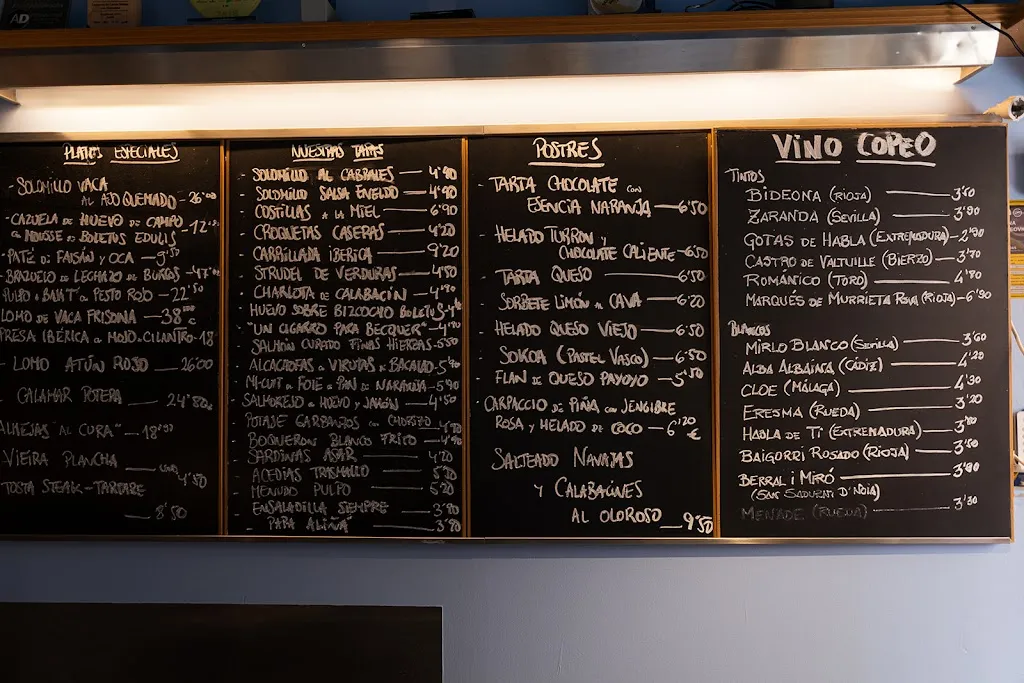 AD
PLATOS ESPECIALES
- SOLOMILLO VACA
AL AJO QUEMADO - 26'00
- CAZUELA DE HUEVO DE CAMPO
MOUSSE DE BOLETUS EDULIS
- PATÉ DE FAISÁN Y OCA - 
- BRAZUELO DE LECHAZO DE BURGOS -
PULPO BRASA PESTO ROJO - 22'50
LOMO DE VACA FRISONA - 38
PRESA IBÉRICA MOJO-CILANTRO - 18
- LOMO ATÚN ROJO - 26'00
- CALAMAR POTERA - 24'80
ALMEJAS "AL CURA" - 18'
VIEIRA PLANCHA - 4'50
TOSTA STEAK-TARTARE
- 8'50
NUESTRAS TAPAS
- SOLOMILLO AL CABRALES - 4'90
- SOLOMILLO SALSA ENELDO - 4'90
- COSTILLAS A LA MIEL - 6'90
- CROQUETAS CASERAS - 4'20
- CARRILLADA IBERICA - 9'20
- STRUDEL DE VERDURAS - 4'80
- CHARLOTA DE CALABACÍN -
- HUEVO SOBRE BIZCOCHO BOLETUS -
- "UN CIGARRO PARA BECQUER" -
- SALMÓN CURADO FINAS HIERBAS - 5'50
- ALCACHOFAS VIRUTAS BACALAO -
- MI-CUIT DE FOIE PAN DE NARANJA - 5'90
- SALMOREJO HUEVO Y JAMÓN - 4'50
- POTAJE GARBANZOS CON CHORIZO -
- BOQUERÓN BLANCO FRITO -
- SARDINAS ASAR - 4'20
- ACEDÍAS TRASMALLO - 5'20
- MENUDO PULPO - 5'20
- ENSALADILLA SIEMPRE - 3'80
- PAPA ALIÑÁ - 3'80
POSTRES
- TARTA CHOCOLATE CON
ESENCIA NARANJA - 6'50
- HELADO TURRON Y
CHOCOLATE CALIENTE - 6'50
- TARTA QUESO - 6'50
- SORBETE LIMÓN AL CAVA - 6'20
- HELADO QUESO VIEJO - 6'50
- SOKOA (PASTEL VASCO) - 6'50
- FLAN DE QUESO PAYOYO - 5'50
- CARPACCIO DE PIÑA CON JENGIBRE
ROSA Y HELADO DE COCO - 6'20 €
SALTEADO NAVAJAS
Y CALABACINES
AL OLOROSO - 9'50
VINO COPEO
TINTOS
BIDEONA (RIOJA) - 3'50
ZARANDA (SEVILLA) - 3'90
GOTAS DE HABLA (EXTREMADURA) - 2'90
CASTRO DE VALTUILLE (BIERZO) - 3'70
ROMÁNICO (TORO) - 4'80
MARQUÉS DE MURRIETA RSVA (RIOJA) - 6'90
BLANCOS
MIRLO BLANCO (SEVILLA) - 3'60
ALBA ALBAINA (CÁDIZ) - 4'20
CLOE (MÁLAGA) - 4'30
ERESMA (RUEDA) - 3'20
HABLA DE TI (EXTREMADURA) - 3'80
BAIGORRI ROSADO (RIOJA) - 3'50
BERRAL I MIRÓ - 3'80
(SAN SADURNÍ D'NOIA)
MENADE (RUEDA) - 3'30